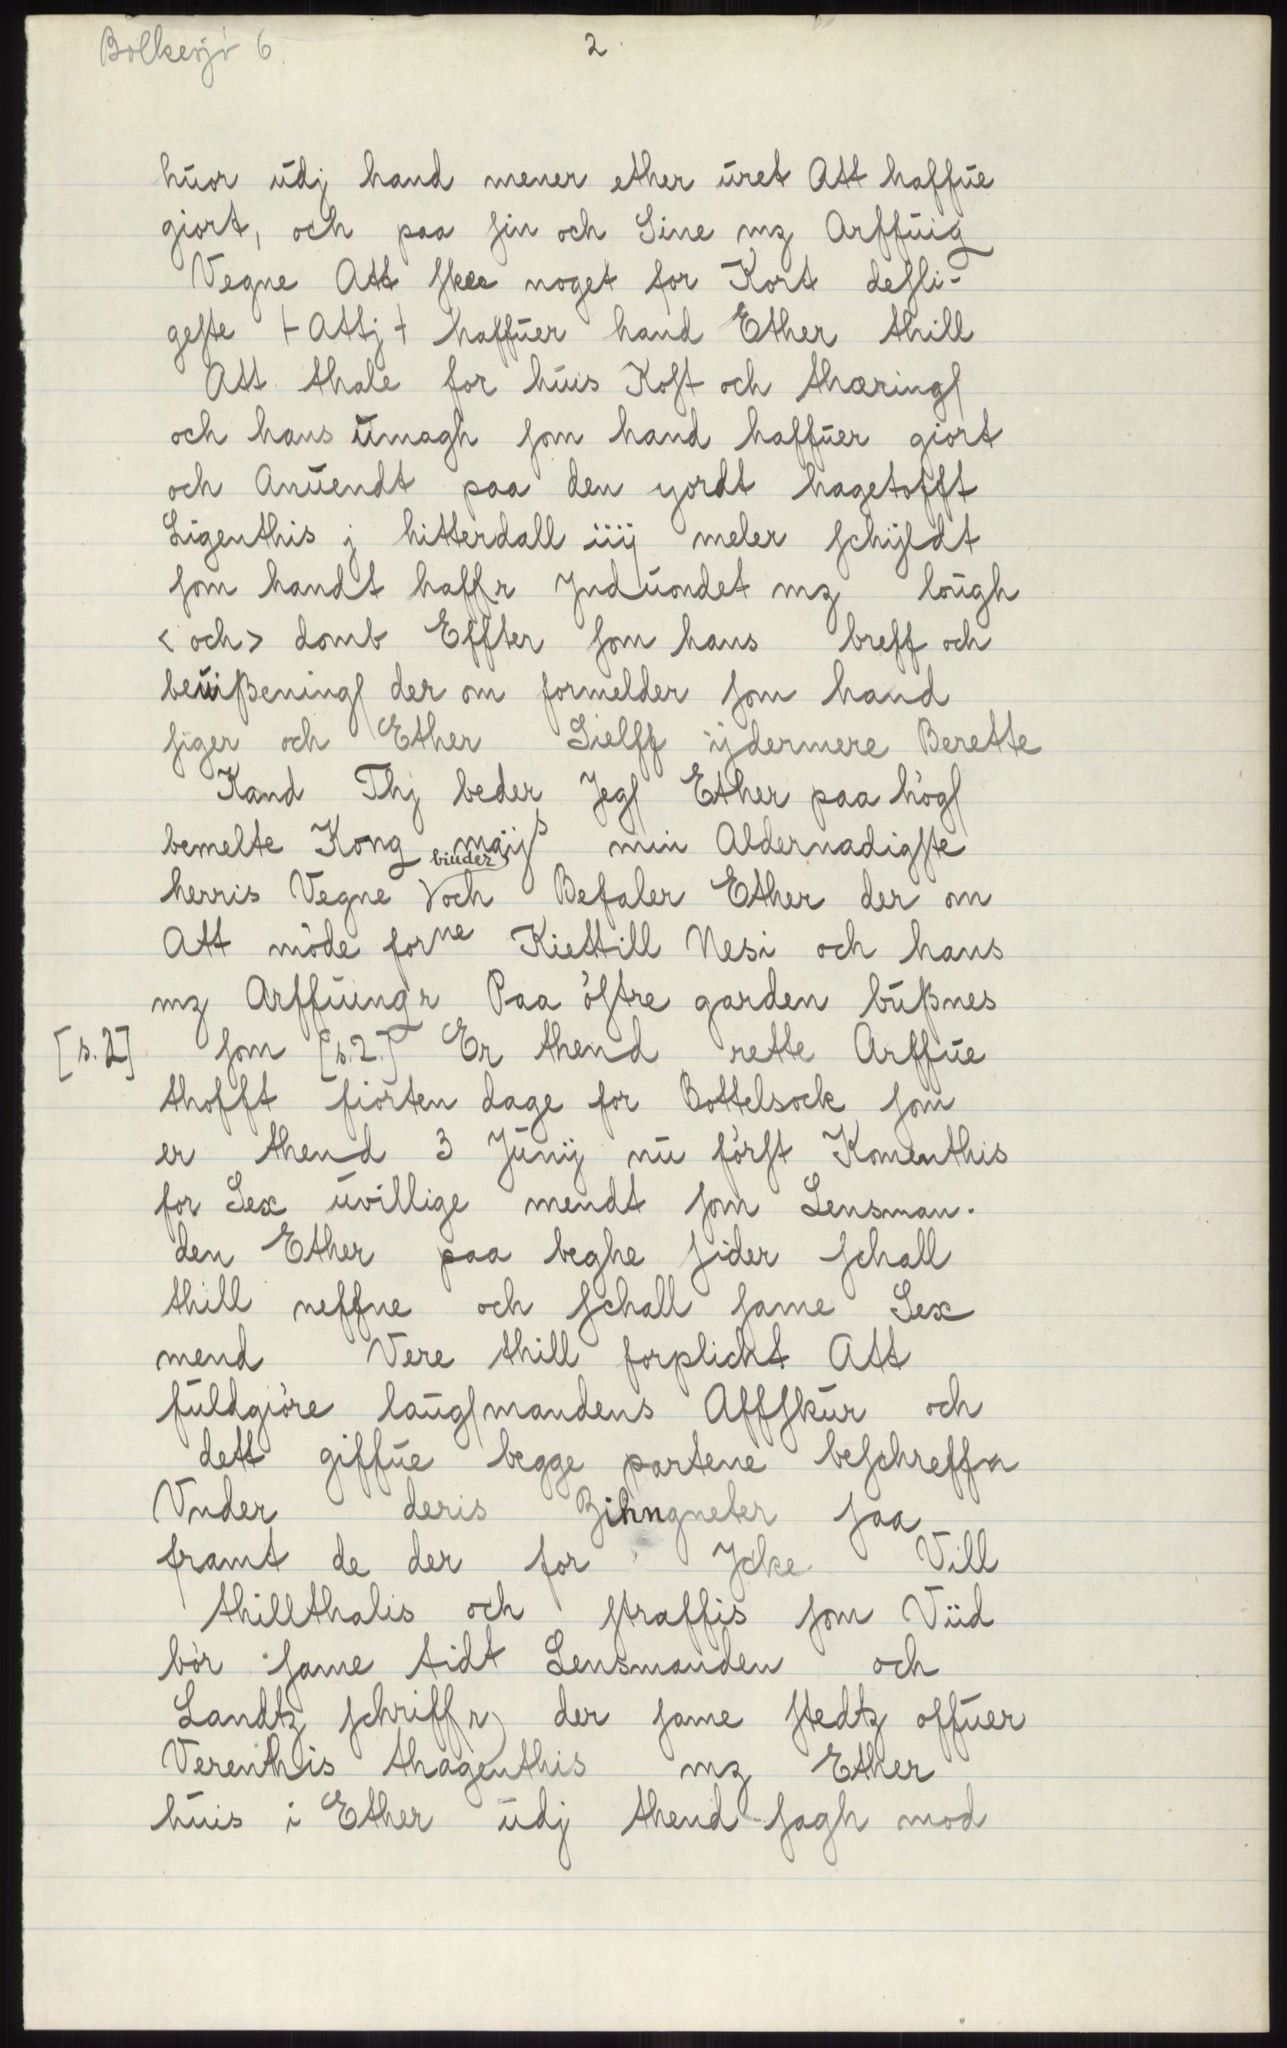 Bolkesjø 6.
2.
huor udj hand mener ether uret Att haffue
giort, och paa ſin och Sine mz Arffuig
Vegne Att ſkee noget for Kort deſli-
geſte ⊢ Attj ⊣ haffuer hand Ether thill
Att thale for huis Koſt och thæringſ
och hans umagh ſom hand haffuer giort
och Anuendt paa den yordt hagetofft
Ligenthis j hitterdall iiij meler ſchÿldt
ſom handt haffr Jnduondet mz lough
< och > domb Effter ſom hans breff och
beuißeningſ der om formelder ſom hand
ſiger och Ether Sielff ijdermere Berette
Kand Thj beder Jegſ Ether paa högſ
bemelte Kong maijs min Aldernadigſte
herris Vegne biuder och Befaler Ether der om
Att möde forne Kiettill Nesi och hans
mz Arffuingr Paa öſtre garden bußnes
[s.2] ſom [s.2.] Er thend rette Arffue
thofft fiorten dage for Bottelsock ſom
er thend 3 Junij nu förſt Komenthis
for Sex uvillige mendt ſom Lensman-
den Ether paa beghe ſider ſchall
thill neffne och ſchall ſame Sex
mend Vere thill forplickt Att
fuldgjöre laugſmandens Affſkur och
dett giffue begge partene beſchreffn
Vnder deris Zihngneter ſaa
framt de der for Jcke Vill
thillthalis och ſtraffis ſom Viid
bör ſame tidt Lensmanden och
Landtz ſchriffr) der ſame ſtedtz offuer
Verenthis thagenthis mz Ether
huis i Ether udj thend ſagh mod